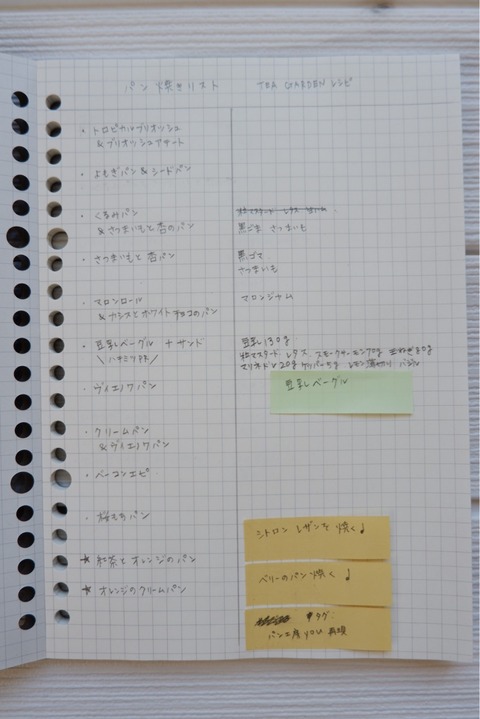 パン 焼きリスト
TEA GARDEN レシピ
・トロピカルブリオッシュ
&ブリオッシュデザート
・よもぎパン & シードパン
・くるみパン
&さつまいもと杏のパン
黒ごま さつまいも
・さつまいもと 杏パン
黒ゴマ
さつまいも
・マロンロール
&カシスとホワイトチョコのパン
マロンジャム
・豆乳ベーグル +サンド
\ハサミ夕味/
豆乳130g
粒マスタード レタス スモークサーモン70g 玉ねぎ80g
マリネドレ20g ケッパー5g レモン薄切り バジル
豆乳ベーグル
・ヴィエノワパン
・クリームパン
&ヴィエノワパン
・ベーコンエピ
・桜あんパン
★紅茶とオレンジのパン
★オレンジのクリームパン
シトロン レザンを 焼く♪
ベリーのパン 焼く♪
タグ
パン工房